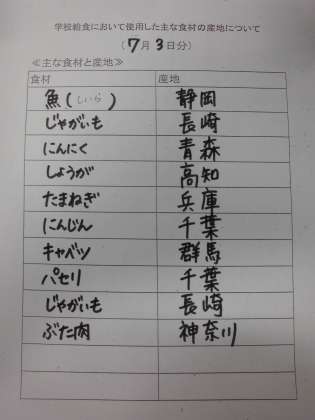 学校給食において使用した主な食材の産地について
(7月3日分)
≪主な食材と産地≫
食材 産地
魚(しいら) 静岡
じゃがいも 長崎
にんにく 青森
しょうが 高知
たまねぎ 兵庫
にんじん 千葉
キャベツ 群馬
パセリ 千葉
じゃがいも 長崎
ぶた肉 神奈川